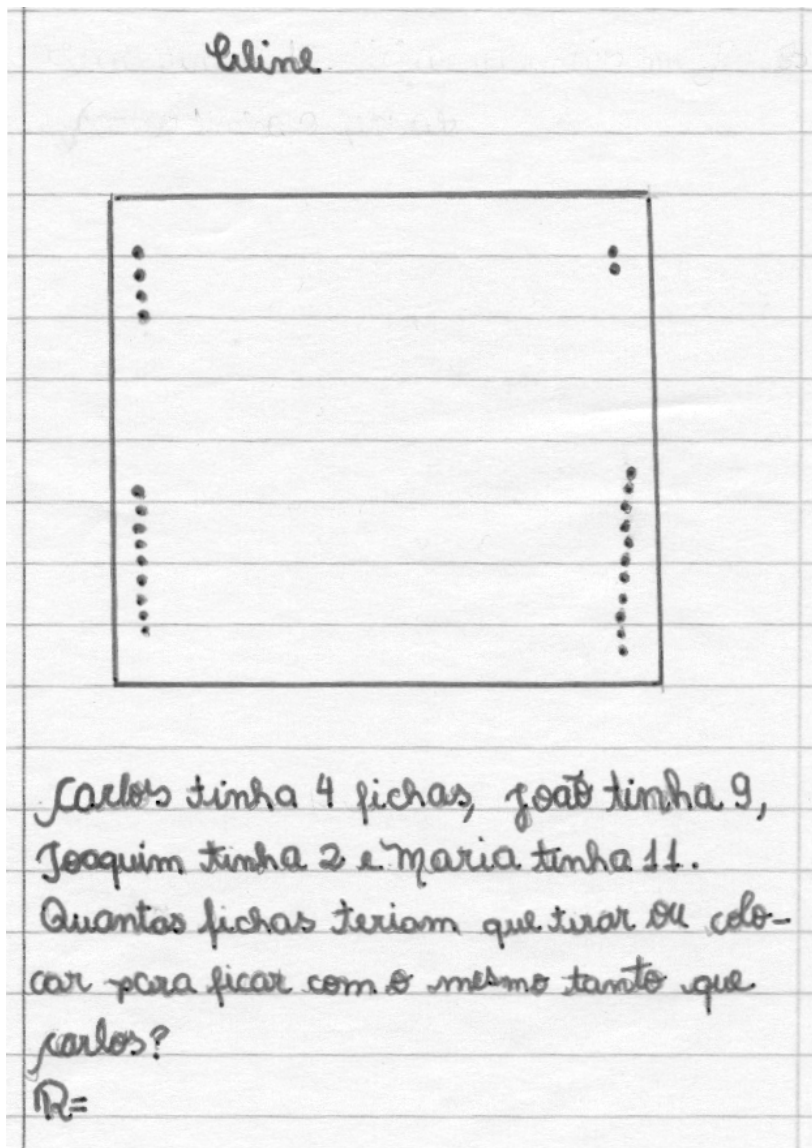 Celine
Carlos tinha 4 fichas, João tinha 9,
Joaquim tinha 2 e Maria tinha 11.
Quantas fichas teriam que tirar ou colo-
car para ficar com o mesmo tanto que
Carlos?
R=